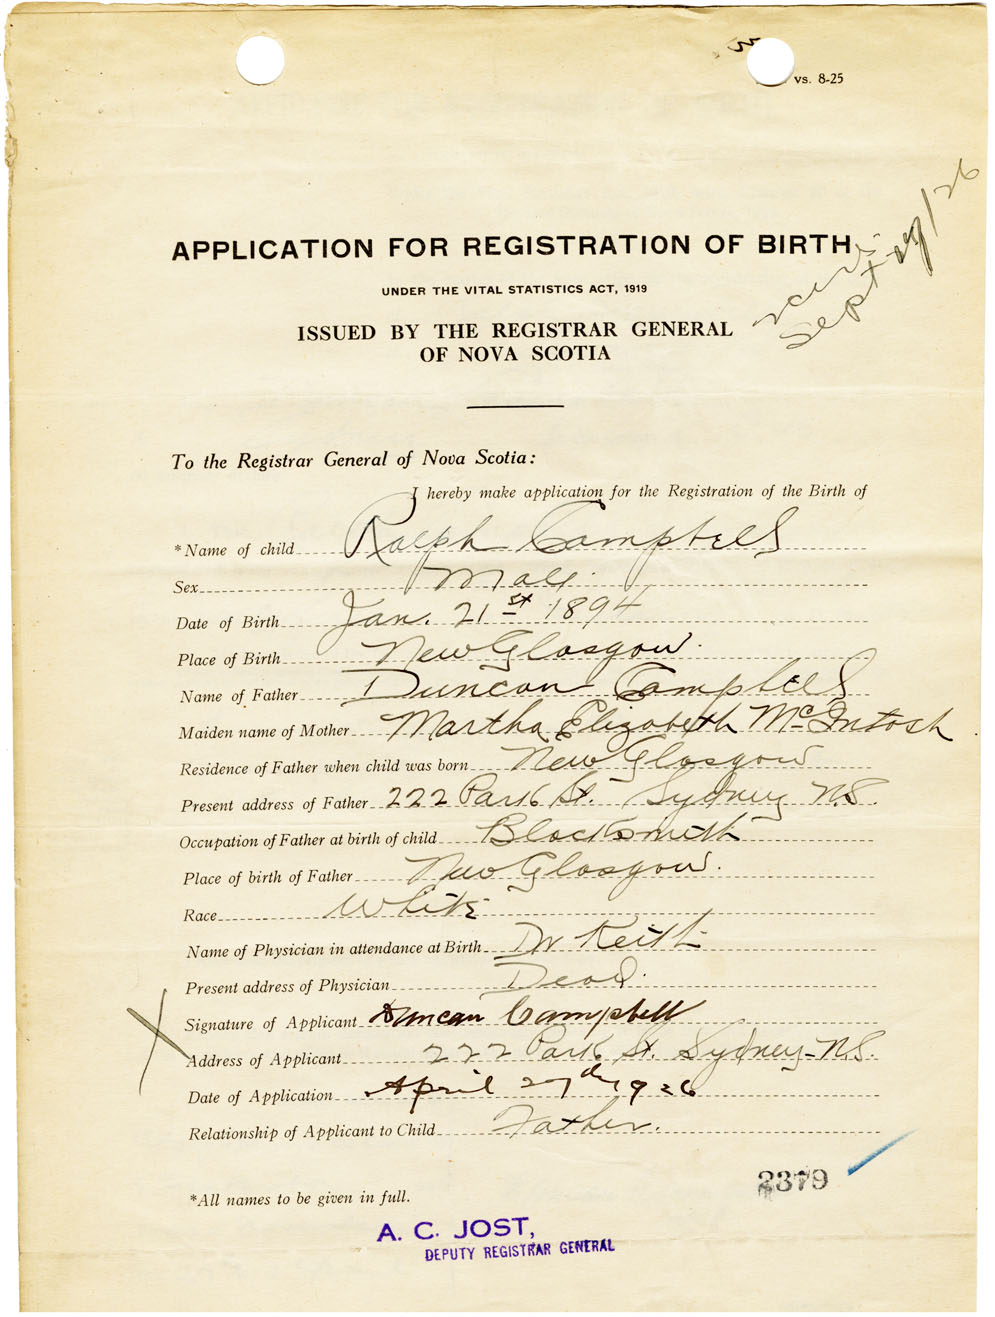 vs. 8-25
Sept 27/26
APPLICATION FOR REGISTRATION OF BIRTH
UNDER THE VITAL STATISTICS ACT, 1919
ISSUED BY THE REGISTRAR GENERAL
OF NOVA SCOTIA
To the Registrar General of Nova Scotia:
I hereby make application for the Registration of the Birth of
*Name of child Ralph Campbell
Sex Male
Date of Birth Jan. 21st 1894
Place of Birth New Glasgow.
Name of Father Duncan Campbell
Maiden name of Mother Martha Elizabeth McIntosh
Residence of Father when child was born New Glasgow
Present address of Father 222 Park St. Sydney N.S.
Occupation of Father at birth of child Blacksmith
Place of birth of Father New Glasgow.
Race White
Name of Physician in attendance at Birth Dr Keith
Present address of Physician Dead.
Signature of Applicant Duncan Campbell
Address of Applicant 222 Park St. Sydney-N.S.
Date of Application April 27th 1926
Relationship of Applicant to Child Father.
2379
*All names to be given in full.
A. C. JOST,
DEPUTY REGISTRAR GENERAL